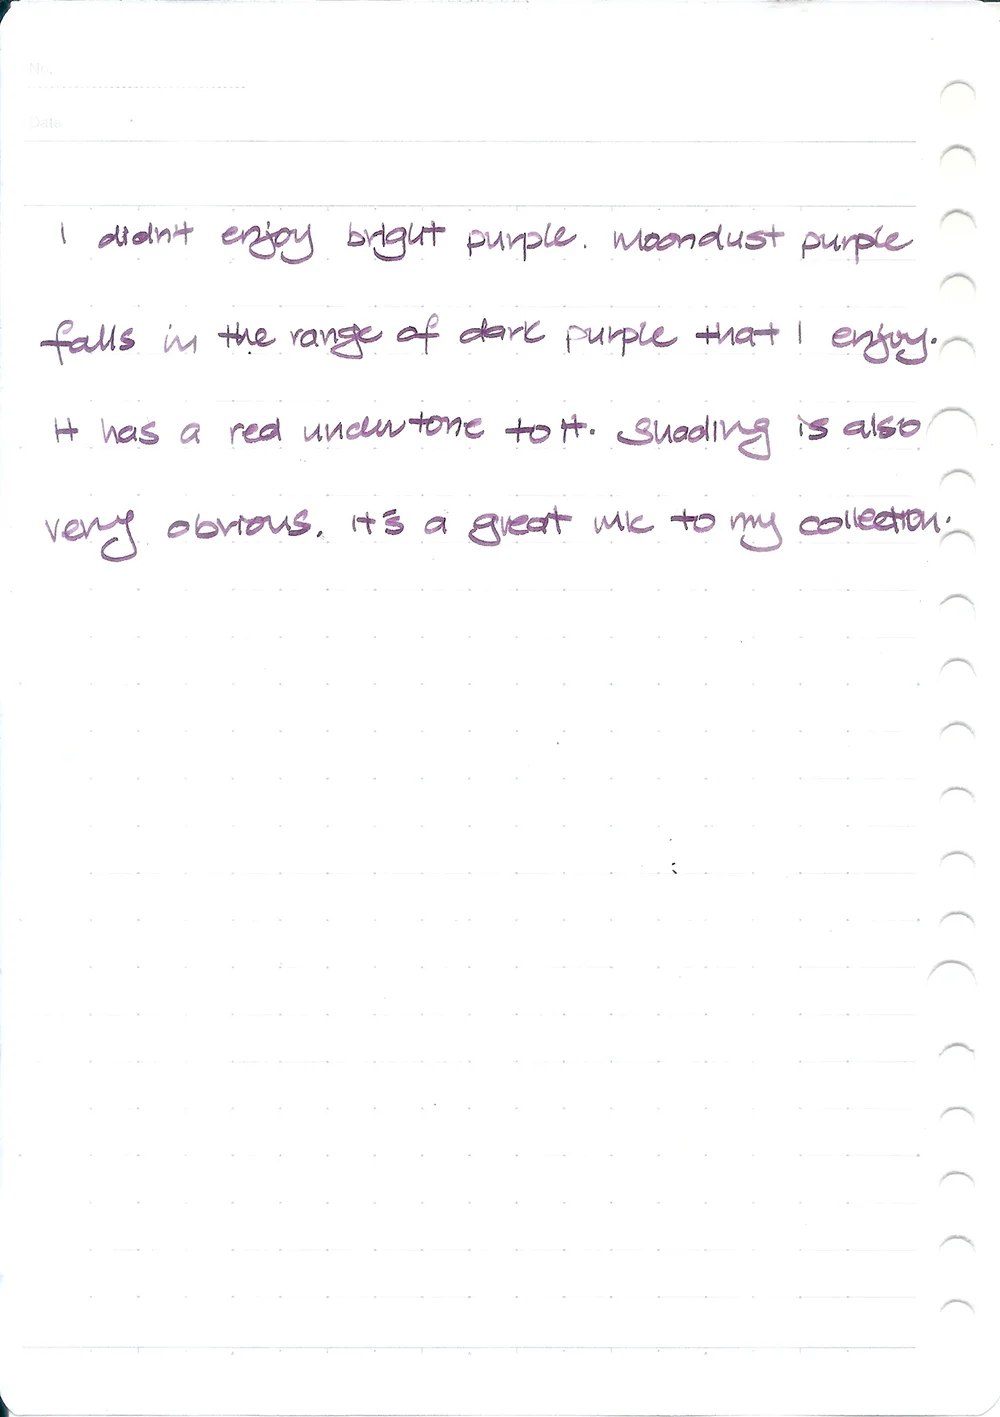 No.
Date
I didn't enjoy bright purple. Moondust purple
falls in the range of dark purple that I enjoy.
It has a red undertone to it. Shading is also
very obvious. It's a great ink to my collection.